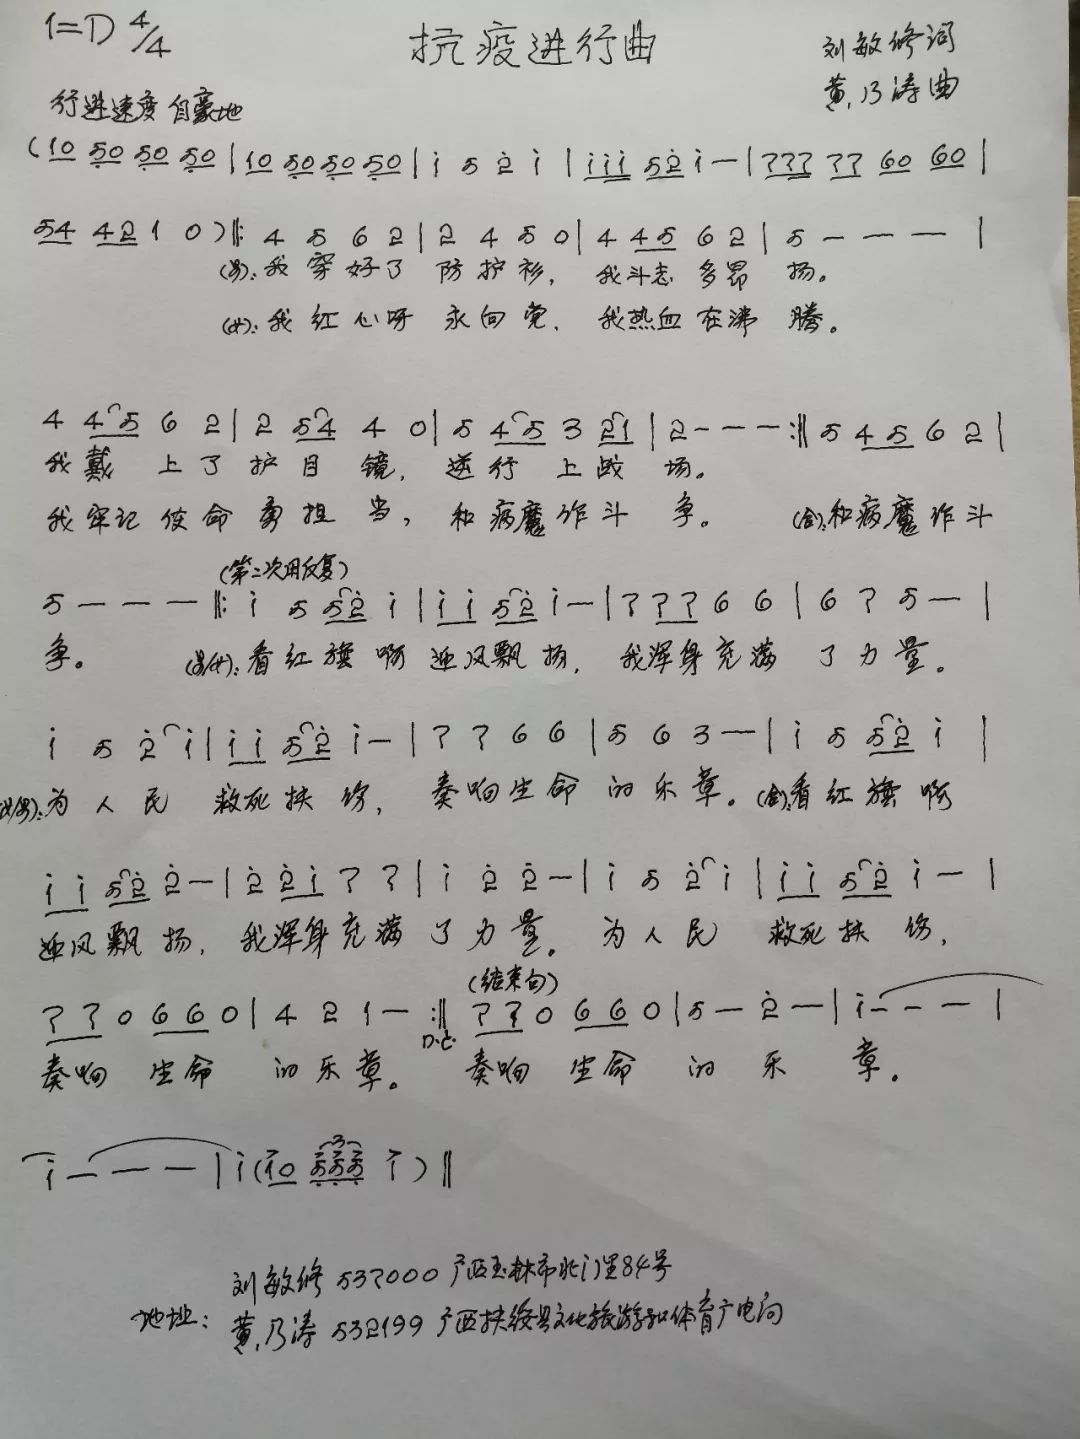 1=D 4/4 抗疫进行曲 刘敏修词
黄.乃涛曲
行进速度 自豪地
(10 50 50 50 | 10 50 50 50 | i 5 2 i | i i i 5 2 i — | 7 7 7 7 7 60 60 |
54 42 1 0 ) ‖: 4 5 6 2 | 2 4 5 0 | 4 45 6 2 | 5 — — — |
(男):我穿好了防护衫,我斗志多昂扬。
(女):我红心呀永向党,我热血在沸腾。
4 45 6 2 | 2 54 4 0 | 5 45 3 21 | 2 - - - :‖ 5 45 6 2 |
我戴上了护目镜,逆行上战场。
我牢记使命勇担当,和病魔作斗争。 (合):和病魔作斗
(第二次用反复)
5 — — — ‖: i 5 52 i | i i 52 i — | 7 77 6 6 | 6 7 5 — |
争。 (男女):看红旗啊迎风飘扬,我浑身充满了力量。
i 5 2 i | i i 52 i — | 7 7 6 6 | 5 6 3 — | i 5 52 i |
(女男):为人民救死扶伤,奏响生命的乐章。(合):看红旗啊
i i 52 2 — | 2 2i 7 7 | i 2 2 — | i 5 2 i | i i 52 i — |
迎风飘扬,我浑身充满了力量。为人民救死扶伤,
(结束句)
7 7 0 6 6 0 | 4 2 1 — :‖ 7 7 0 6 6 0 | 5 — 2 — | i — — — |
D.C.
奏响生命的乐章。奏响生命的乐章。
i — — — | i (i0 555 i ) ‖
3
刘敏修 537000 广西玉林市北门里84号
地址: 黄.乃涛 532199 广西扶绥县文化旅游和体育广电局